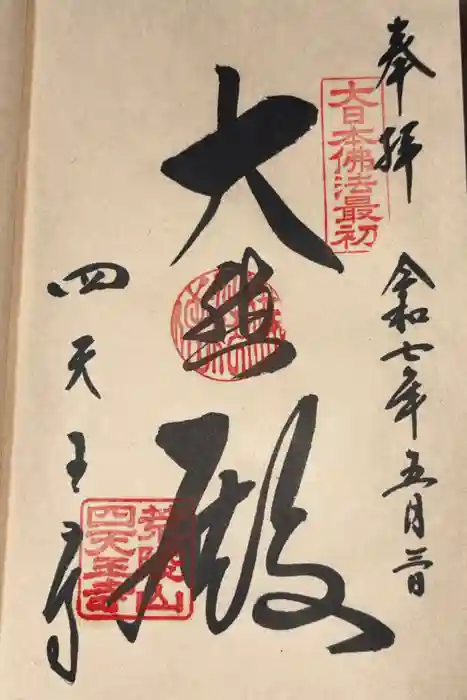 奉拝 令和七年五月三日
大日本佛法最初
大悲殿
四天王寺
荒陵山
四天王寺